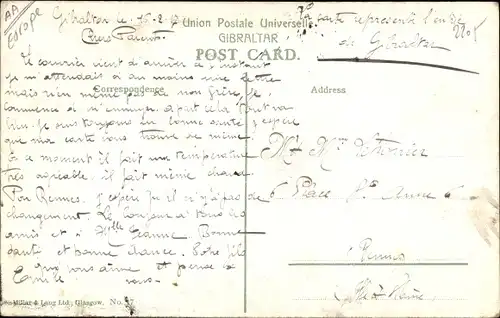 AA
EUROPE
Gibraltar le 16-2-
Chers Parents
Union Postale Universelle
GIBRALTAR
POST CARD.
la carte représente l'entrée
de Gibraltar
2205
Correspondence
Address
Le courrier vient d'arriver à l'instant
je m'attendais à au moins une lettre
mais rien même pas de mon frère, je
commence à m'ennuyer à part cela tout va
bien je suis toujours en bonne santé j'espère
que ma carte vous trouve de même
En ce moment il fait une température
très agréable il fait même chaud
Pour Rennes. J'espère qu'il n'y a pas de
changement. Le bonjour à tous les
amis et à Mlle Jeanne. Bonne
santé et bonne chance. Votre fils
qui vous aime et pense à
Emile vous
Mr Mme
6 Place Ste Anne 6
Rennes
Ille & Vilaine
Millar & Lang Ltd., Glasgow. No.